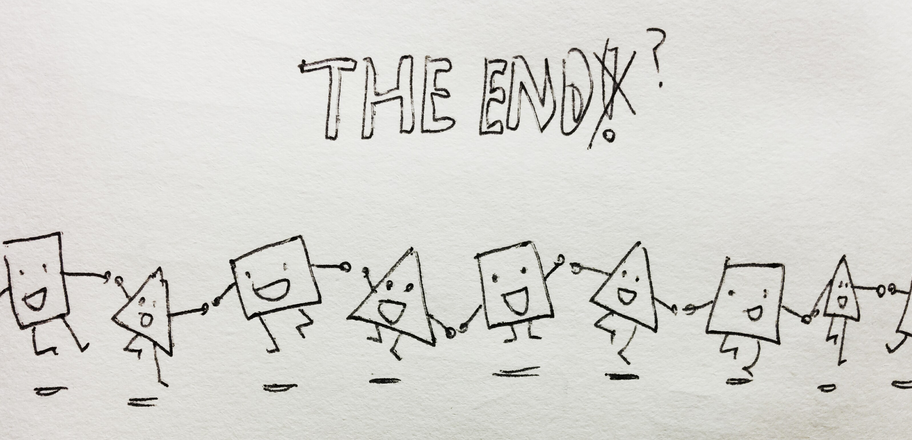 THE END!?